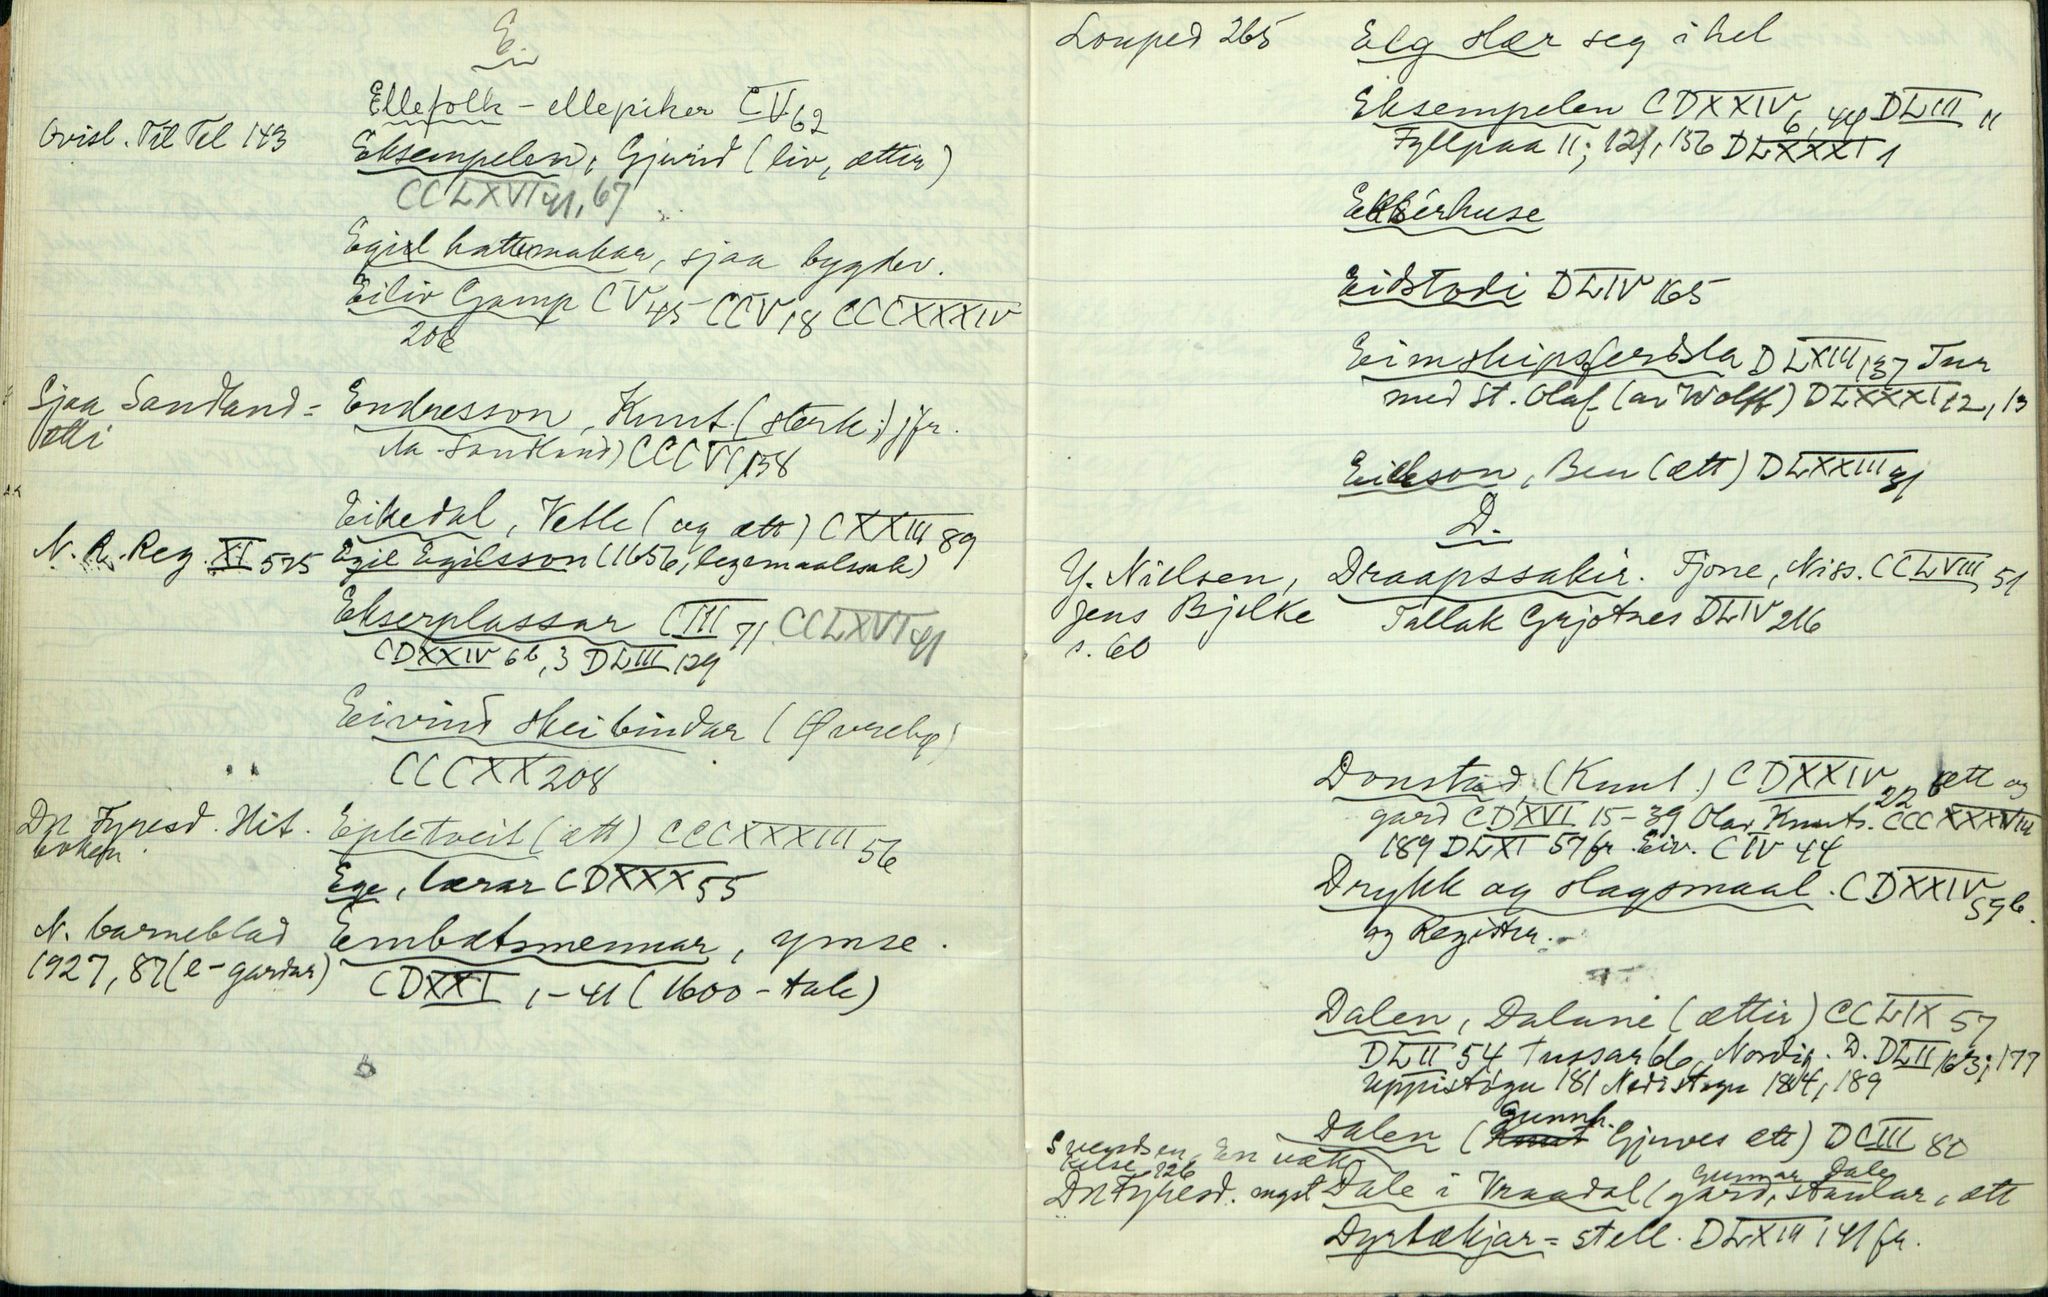 E.
Ellefolk - ellepiker CV 62
Ovisl. Til Tel 143
Eksempelen, Gjurid (liv, ættir)
CCLXVI 41, 67
Egil hattemakar, sjaa bygdev.
Eiliv Gamp CV 45 CCV 18 CCCXXXIV
206
Sjaa Sandland=
ætti
Endresson, Knut (sterk;) jfr.
Aa Sandland) CCCVI 158
Eikedal, Vetle (og ætt) CXXIII 89
N. R. Reg. XI 525 Egil Egilsson (1656, legemaalssak)
Ekserplassar CIII 71 CCLXVI 41
CDXXIV 6b, 3 DLIII 129
Eivind skeibindar (Øvrebø)
CCCXX 208
Dn Fyresd. Hit.
boken.
Epletveit (ætt) CCCXXXIII 56
Ege, lærar CDXXX 55
N. barneblad
1927, 87 (e-gardar)
Embætsmennar, ymse.
CDXXI 1-41 (1600-tale)
Louped 265 Elg slær seg i hel
Eksempelen CDXXIV 6, 44 DLIII 11
Fyllpaa 11; 121, 156 DLXXXI 1
Eidstodi DLIV 165
Eimskipsferdsla DLXIII 137 Tur
med St. Olaf (av Wolff) DLXXXI 12, 13
Erickson, Ben (ætt) DLXXIII 31
D.
Y. Nielsen,
Jens Bjelke
s. 60
Draapssakir. Fjone, Niss. CCLVIII 51
Tallak Grjotnes DLIV 216
Donstad, (Knut) CDXXIV 22 ætt og
gard CDXVI 15-39 Olav Knuts. CCCXXXVIII
189 DLXI 57 fr. Eiv. CIV 44
Drykk og slagsmaal. CDXXIV 59b.
og Register.
Dalen, Dalane (ættir) CCLIX 57
DLII 54 Tussar 66, Nordig. D. DLII 163; 177
Uppistogu 181 Nedistogu 184, 189
Gunnh.
Dalen (Knut Gjuves ætt) DCIII 80
Svendsen, En
126
Gunnar Dale
Dn Fyresd. mgst Dale i Vraadal (gard, stanlar, ætt
Dyrtækjar = stell. DLXIII 141 fr.